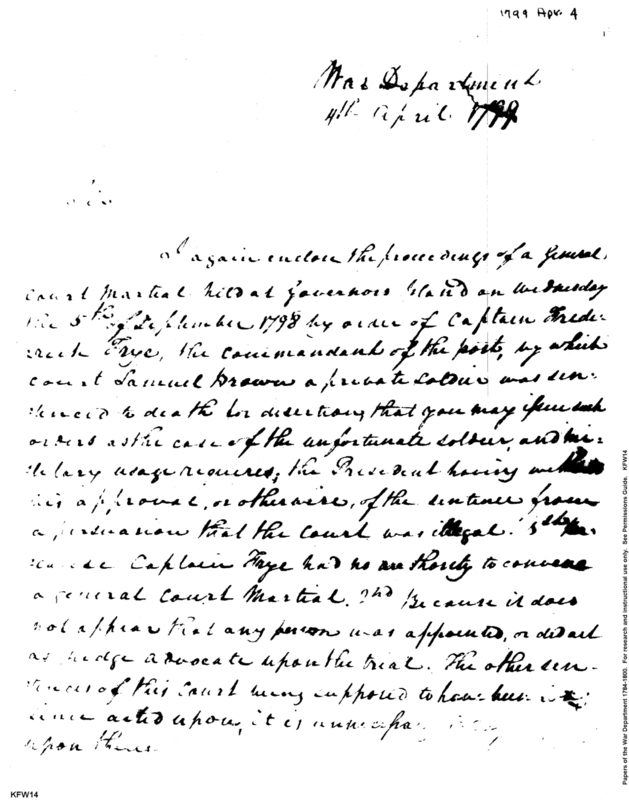 1799 Apr. 4
War Department
4th April 1799
Sir
I again enclose the proceedings of a General
Court Martial held at Governors Island on Wednesday
the 5th of September 1798 by order of Captain Frede-
rick Frye, the commandant of the post, by which
court Samuel Brown a private soldier was sen-
tenced to death for desertion, that you may issue such
orders as the case of the unfortunate soldier, and mi-
litary usage requires; the President having
his approval, or otherwise, of the sentence from
a persuasion that the court was illegal. 1st Be-
cause Captain Frye had no authority to convene
a general Court Martial. 2nd Because it does
not appear that any person was appointed, or did act
as judge advocate upon the trial. The other sen-
tences of this Court being supposed to have been
since acted upon, it is unnecessary
upon them.
KFW14
Papers of the War Department 1784-1800. For research and instructional use only. See Permissions Guide. KFW14